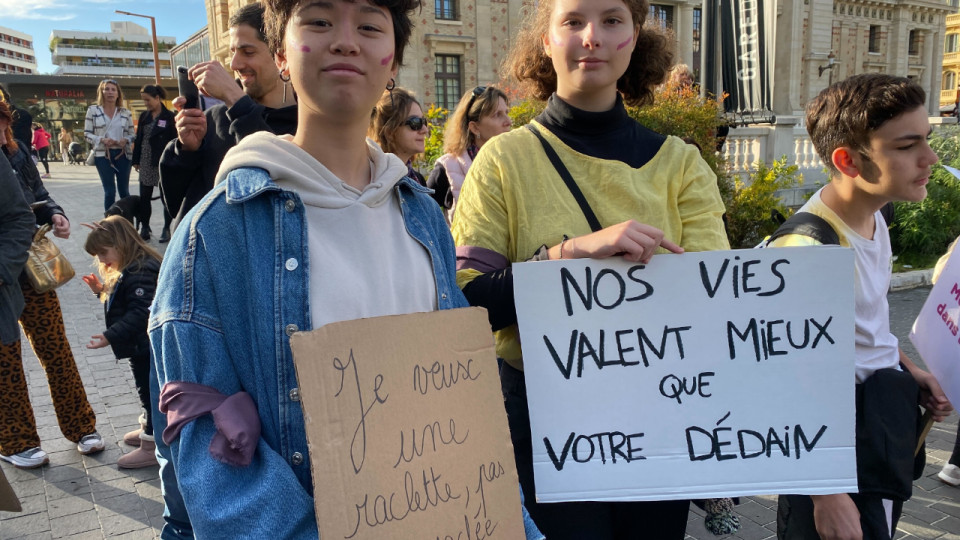 Je veux
une
raclette, pas
NOS VIES
VALENT MIEUX
QUE
VOTRE DÉDAIN
dans